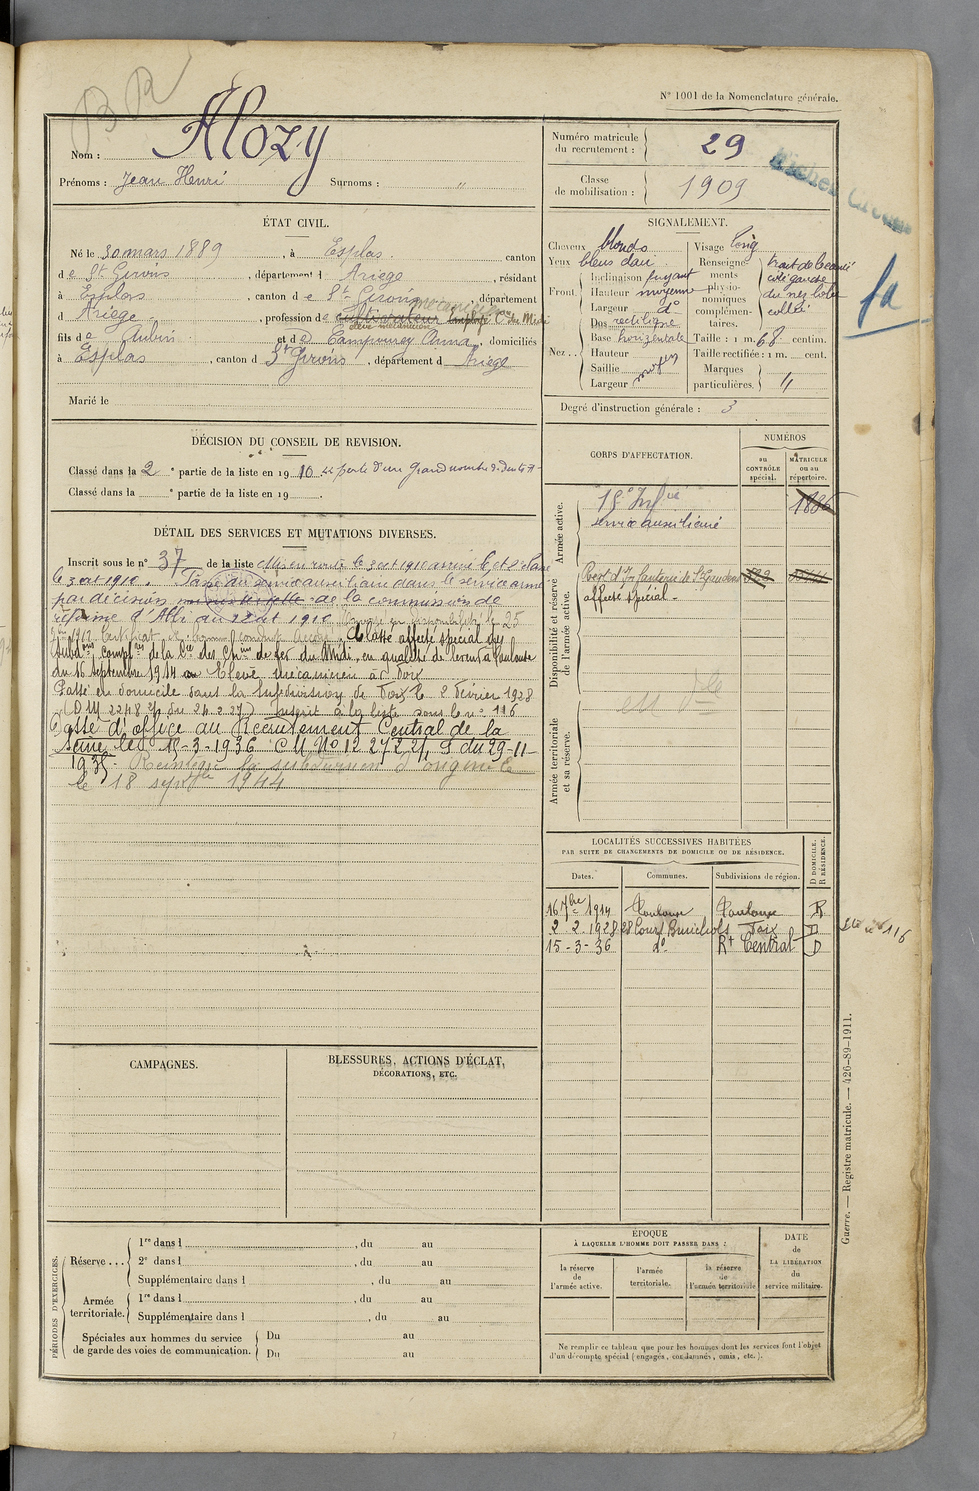 B R
N° 1001 de la Nomenclature générale.
Nom : Alozy
Prénoms : Jean Henri Surnoms : "
Numéro matricule du recrutement : 29
Classe de mobilisation : 1909
ÉTAT CIVIL.
Né le 30 mars 1889, à Esplas. canton
de St Girons, département d Ariège, résidant
à Esplas, canton de St Girons, département
d Ariège, profession de cultivateur employé Cie du Midi
mécanicien
élève mécanicien
fils de Aubin et de Campourcy Anna, domiciliés
à Esplas, canton de St Girons, département d Ariège
Marié le
SIGNALEMENT.
Cheveux blonds
Yeux bleus clair
Front. Inclinaison fuyant
Hauteur moyenne
Largeur do
Nez.. Dos rectiligne
Base horizontale
Hauteur
Saillie moyen
Largeur
Visage long
Renseignements physionomiques complémentaires.
côté gauche
du nez lobe
collé
Taille : 1 m. 68 centim.
Taille rectifiée : 1 m. cent.
Marques particulières. "
Degré d'instruction générale : 3
fa
DÉCISION DU CONSEIL DE REVISION.
Classé dans la 2e partie de la liste en 1910 perte d'un grand nombre de dents
Classé dans la e partie de la liste en 19
DÉTAIL DES SERVICES ET MUTATIONS DIVERSES.
Inscrit sous le n° 37 de la liste Mis en route le 3 oct 1910 arrivé le dit
le 3 oct 1910. Passé du service auxiliaire dans le service armé
par décision de la commission de
réforme d'Albi du 22 oct 1910. Envoyé en disponibilité le 25
1912. Certificat de bonne conduite Accordé. Classé affecté spécial des
Subdons complres de la Cie des Chins de fer du Midi, en qualité de à Toulouse
du 16 septembre 1914 Elève mécanicien à Foix
Passé en domicile dans la subdivision de Foix le 2 Février 1928
(DM 2248 2/ du 24.2.27) Inscrit à la liste sous le no 116
Passé d'office au Recrutement Central de la
Seine le 15-3-1936 C.M. No 12 272 2/ S du 29-11-
1935. Réintégré la subdivision d'origine le
le 18 septbre 1944
CORPS D'AFFECTATION.
NUMÉROS
au CONTRÔLE spécial.
MATRICULE ou au répertoire.
Armée active.
15e Infie
service auxiliaire
1886
Disponibilité et réserve de l'armée active.
Regt d'Infanterie de St Gaudens
affecté spécial.
Armée territoriale et sa réserve.
LOCALITÉS SUCCESSIVES HABITÉES
PAR SUITE DE CHANGEMENTS DE DOMICILE OU DE RÉSIDENCE.
Dates. Communes. Subdivisions de région. D DOMICILE. R RÉSIDENCE.
16 7bre 1914 Toulouse Toulouse R
2.2.1928 28 Cours Foix D
15-3-36 do Rt Central D
116
CAMPAGNES.
BLESSURES, ACTIONS D'ÉCLAT,
DÉCORATIONS, ETC.
PÉRIODES D'EXERCICES.
Réserve... 1re dans l , du au
2e dans l , du au
Supplémentaire dans l , du au
Armée territoriale. 1re dans l , du au
Supplémentaire dans l , du au
Spéciales aux hommes du service de garde des voies de communication. Du au
Du au
ÉPOQUE
À LAQUELLE L'HOMME DOIT PASSER DANS :
la réserve de l'armée active.
l'armée territoriale.
la réserve de l'armée territoriale
DATE de LA LIBÉRATION du service militaire.
Ne remplir ce tableau que pour les hommes dont les services font l'objet
d'un décompte spécial (engagés, condamnés, omis, etc.).
Guerre. — Registre matricule. — 426-89-1911.